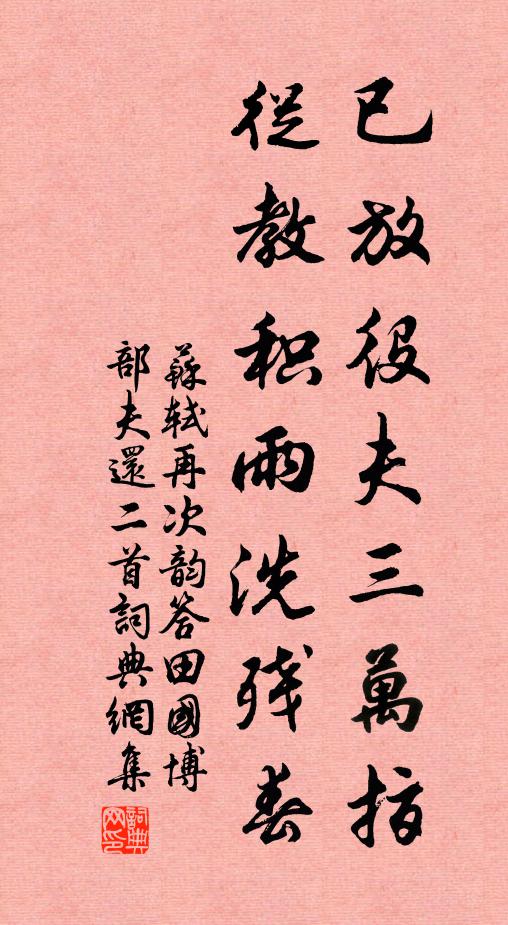 已放役夫三萬指
從教积雨洗残春
蘇轼再次韵答田國博
部夫還二首詞典網集
詞典
网印